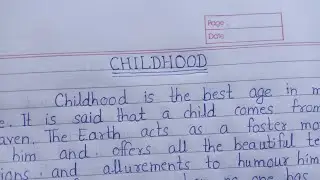 Page
Date
CHILDHOOD
Childhood is the best age in m
e. It is said that a child comes from
aven. The Earth acts as a foster mo
him and offers all the beautiful te
ions and allurements to humour him
no one has